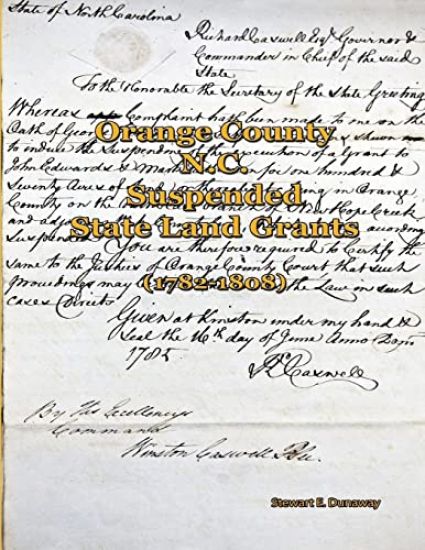 State of North Carolina
Richard Caswell Esqr. Governor &
Commander in Chief of the said
State
To the Honorable the Secretary of the State Greeting
Whereas Complaint hath been made to me on the
Oath of Geor
to induce the Suspending of the execution of a Grant to
John Edwards & for one hundred &
Seventy Acres of in Orange
County on the New Hope Creek
and according
Suspended You are therefore required to Certify the
same to the Justices of Orange County Court that such
proceedings may the Law in such
cases Directs
Given at Kinston under my hand &
Seal the 16th day of June Anno Dom
1785
Rd Caswell
By his Excellencys
Command
Winston Caswell P. Sec.
Orange County
N.C.
Suspended
State Land Grants
(1782-1808)
Stewart E. Dunaway